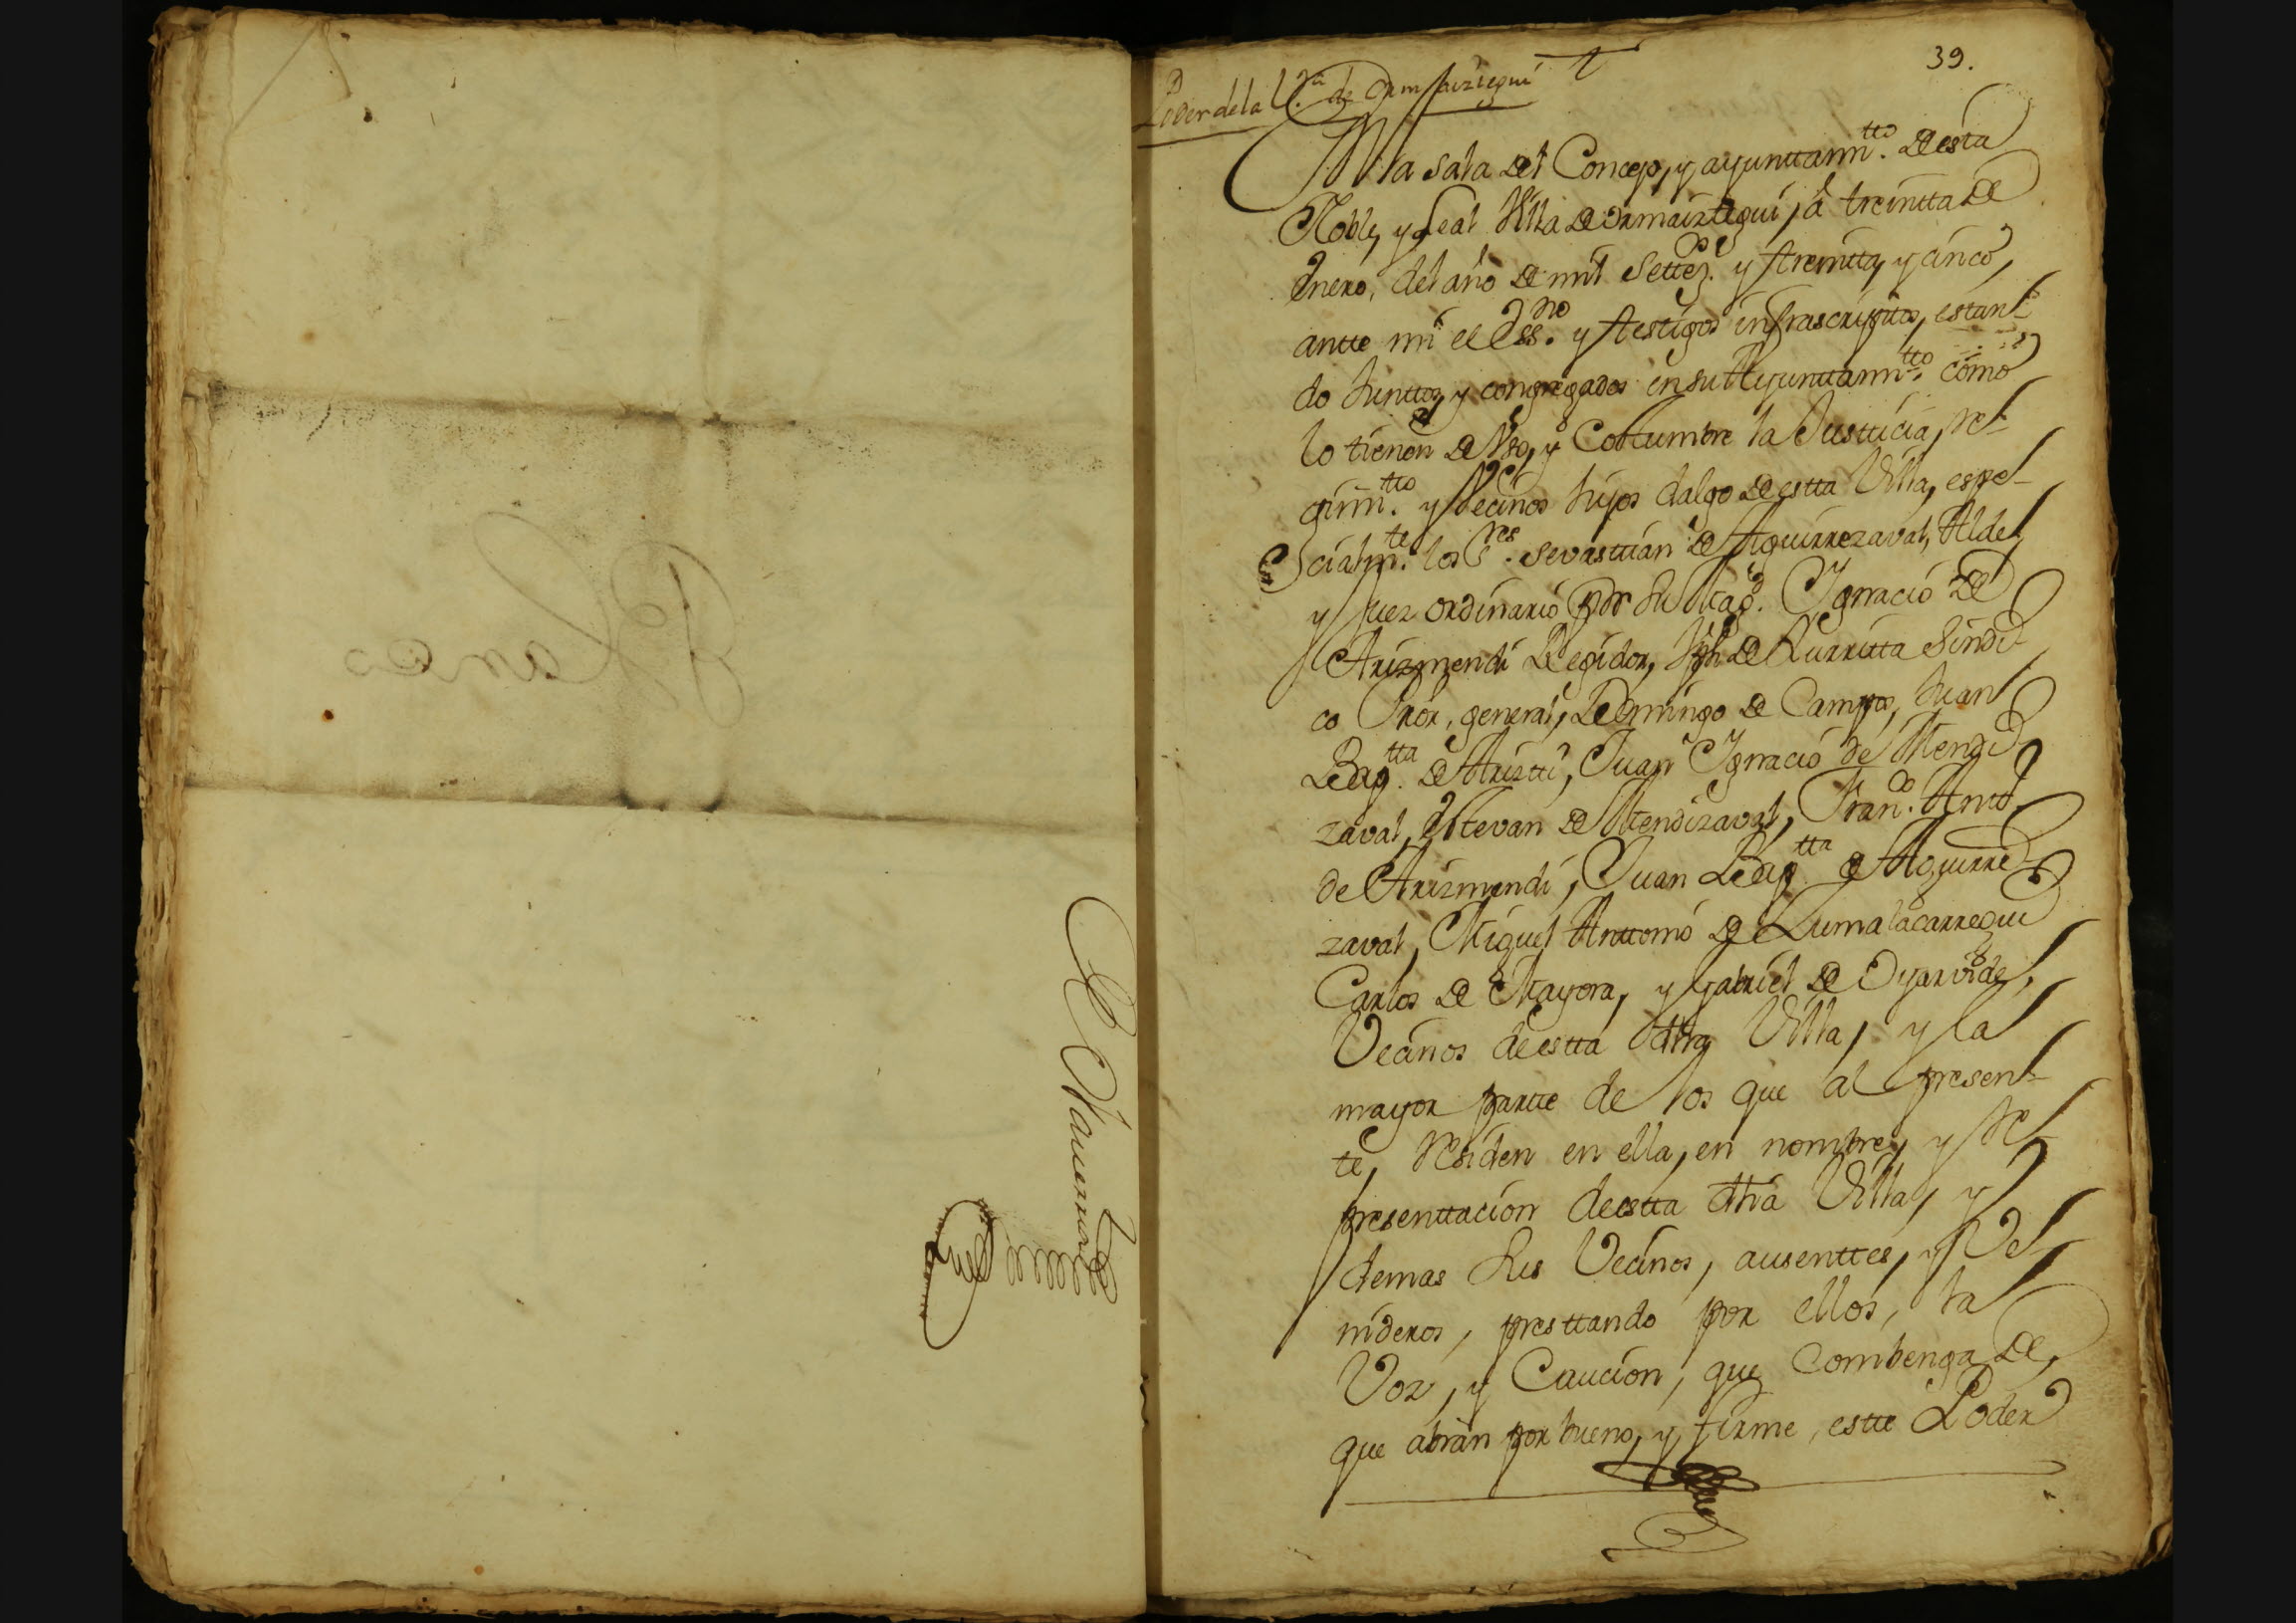 Blanco
39.
Poder de la V.ª de Ormaiztegui
En la sala del Concejo, y ayunttam.tto de esta
Noble, y Leal Villa de Ormaiztegui, a treintta de
Enero, del año de mil Settez.os y treintta, y cinco,
antte mi el Ess.no y testigos infrascripttos, estan-
do Junttos, y congregados en su Ayunttam.tto como
lo tienen de Vso, y Costumbre la Justticia, re-
gim.tto y Vecinos hijos dalgo de estta Villa, espe-
cialm.te los S.res Sevasttian de Aguirrezaval, Alcde
y Juez ordinario por su Mag.d Ignacio de
Arizmendi Regidor, Jph de Yurritta Sindi
co Pror. general, Domingo de Campos, Juan
Bap.tta de Ariztti, Juan Ignacio de Mendi
zaval, Estevan de Mendizaval, Fran.co Antt.o
de Arizmendi, Juan Bap.tta de Aguirre
zaval, Miguel Anttonio de Zumalacarregui
Carlos de Mayora, y Gabriel de Oyarvide,
Vecinos de estta dha Villa, y la
mayor partte de los que al presen-
te, residen en ella, en nombre, y re
presenttacion de estta dha Villa, y
demas sus Vecinos, ausenttes, y Ve
nideros, presttando por ellos, la
Voz, y Caucion, que Combenga de,
que abran por bueno, y firme, estte Poder